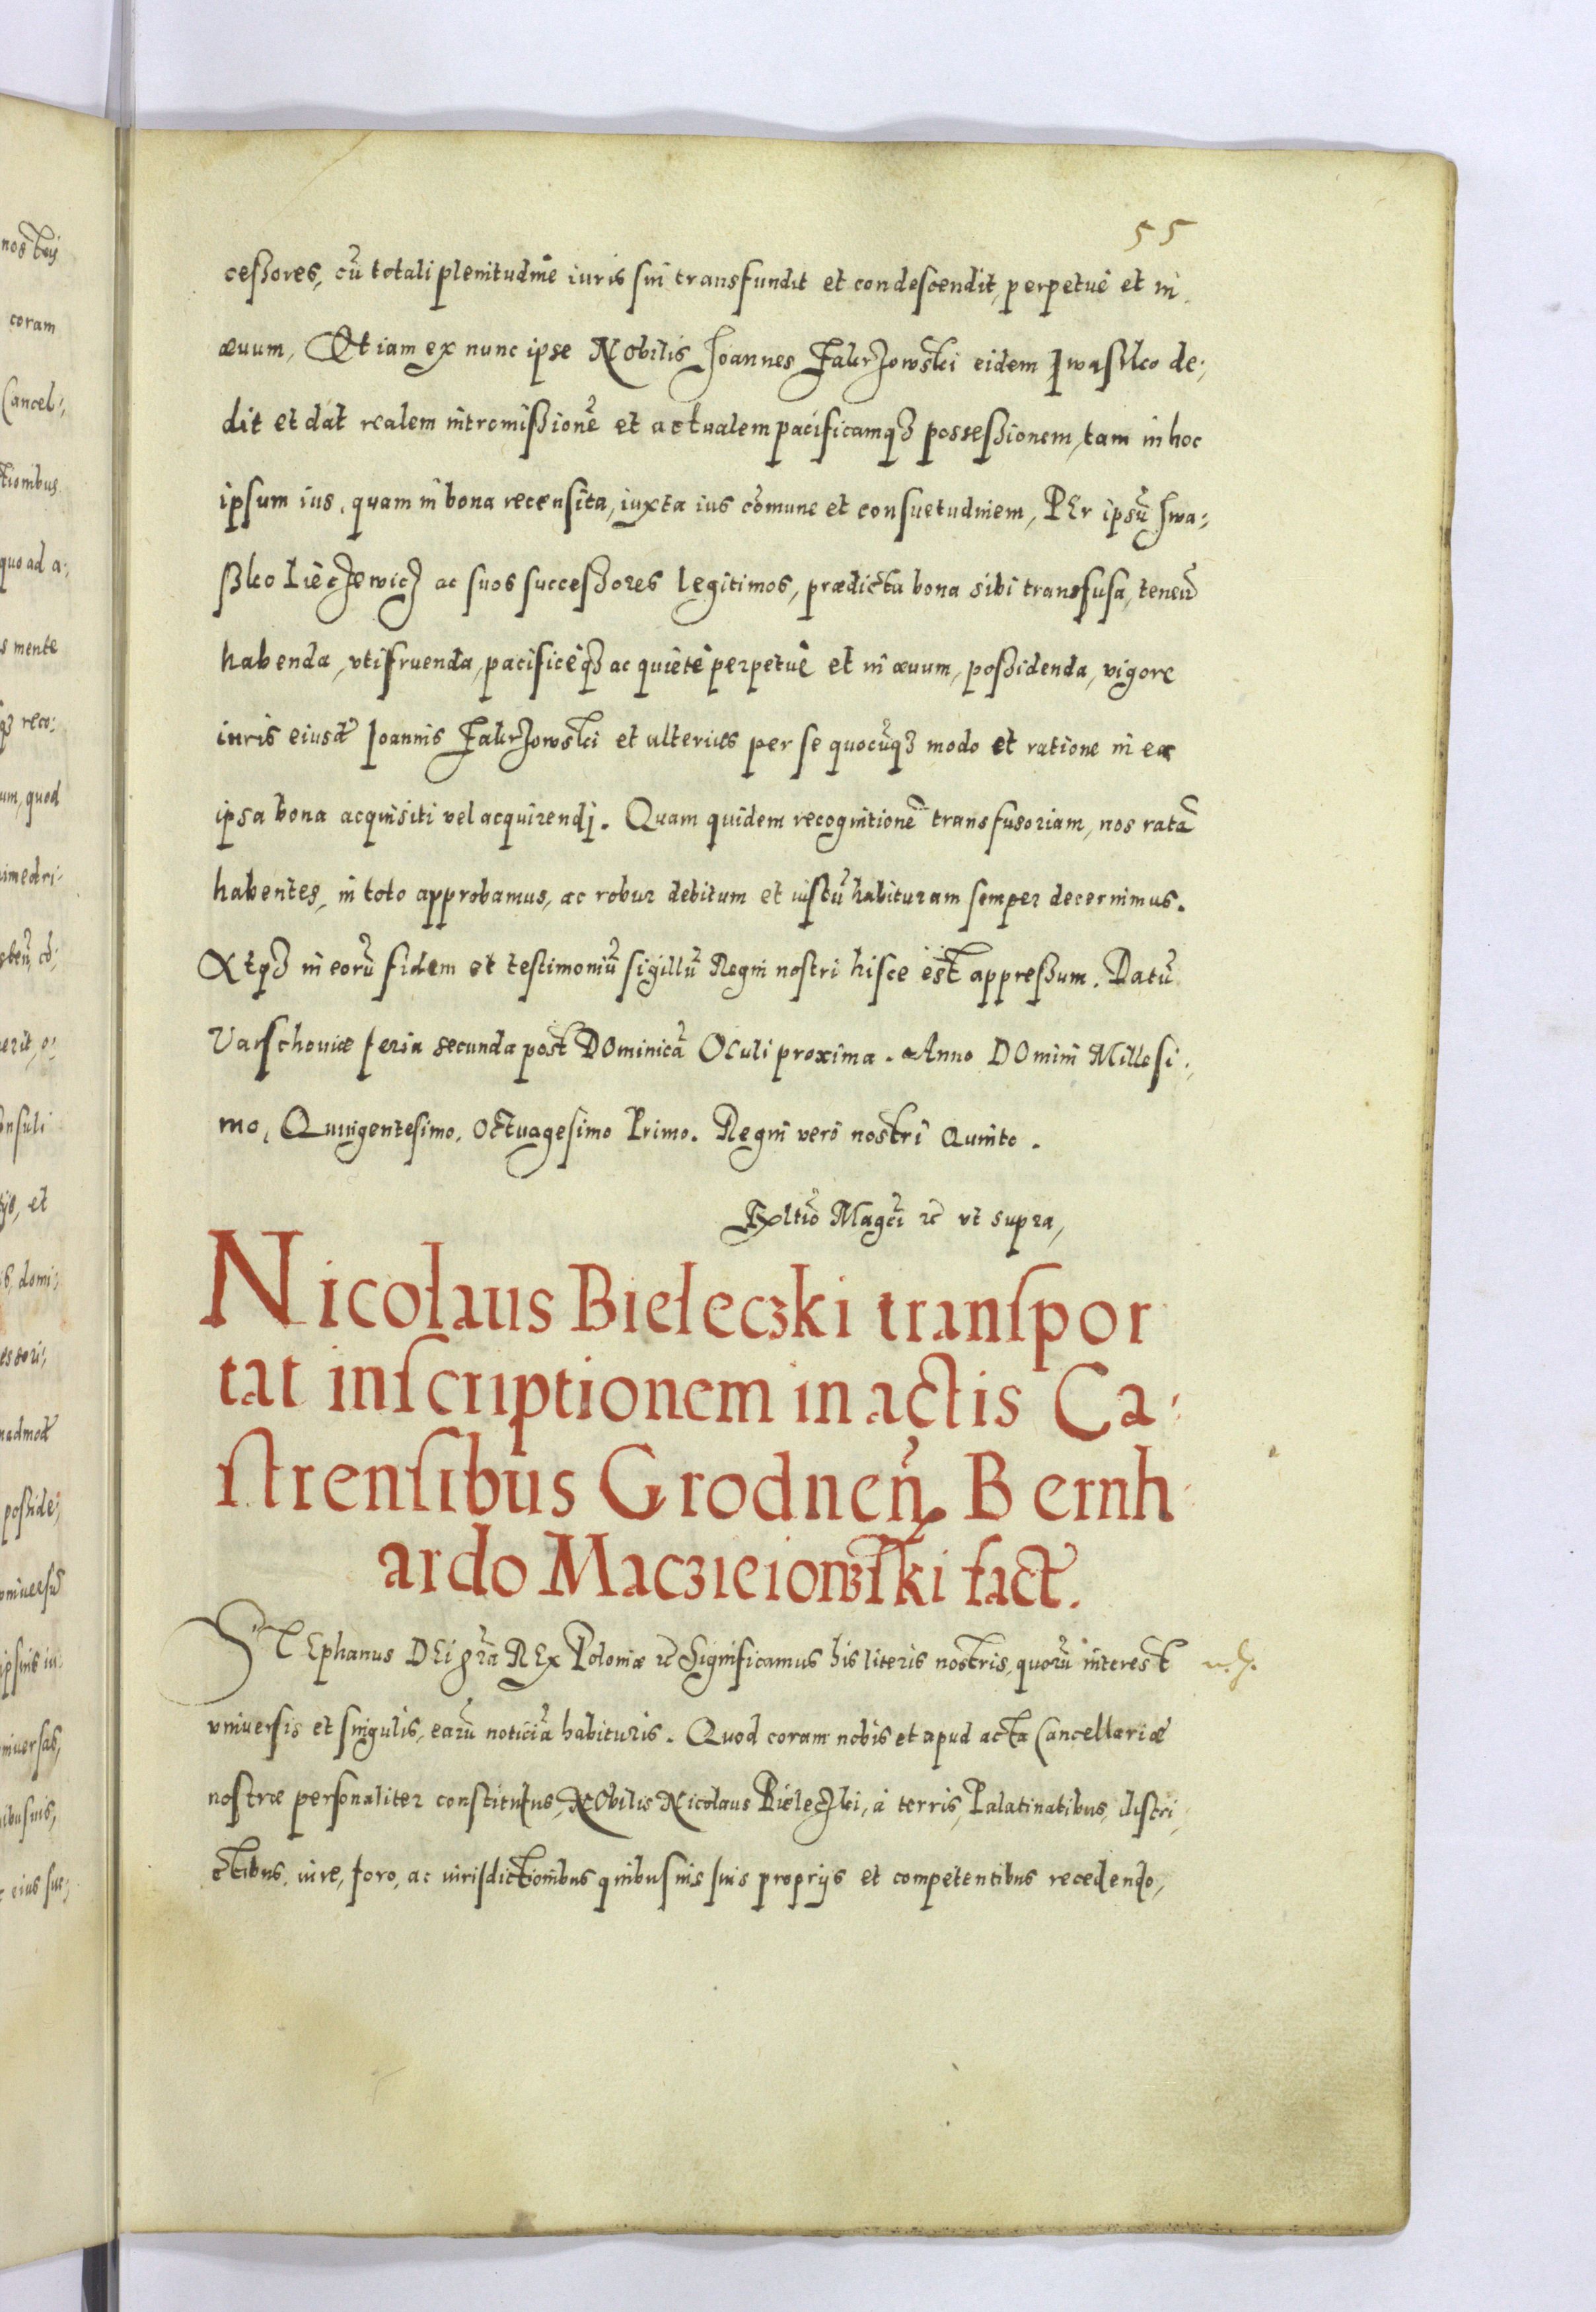 55
ceßores, cũ totali plenitudine iuris sui transfundit et condescendit, perpetuè et in
æuum, Et iam ex nunc ipse NObilis Joannes Zakrzowski eidem Iwasko de:
dit et dat realem intromißionẽ et actualem pacificamqꝫ posseßionem, tam in hoc
ipsum ius, quam in bona recensita, iuxta ius cõmune et consuetudinem, PEr ipsũ Iwa:
ßko ac suos succeßores legitimos, prædicta bona sibi transfusa, tenen̄
habenda, vtifruenda, pacificèqꝫ ac quietè perpetuè et in æuum, poßidenda, vigore
iuris eiusd̃ Ioannis Zakrzowski et alterius per se quocũqꝫ modo et ratione in ea
ipsa bona acquisiti vel acquirendj. Quam quidem recognitionẽ transfusoriam, nos ratã
habentes, in toto approbamus, ac robur debitum et iustũ habituram semper decernimus.
Atqꝫ in eorũ fidem et testimoniũ sigillũ Regni nostri hisce est appreßum. Datũ
Varschouiæ feria secunda post DOminicã Oculi proxima. Anno DOmini Millesi:
mo, Quingentesimo, Octuagesimo Primo. Regni verò nostri Quinto.
Rxltiõ Magci ꝛc̃ vt supra,
Nicolaus Bieleczki transpor
tat inscriptionem in actis Ca:
strensibus Grodnen̄. Bernh
ardo Maczieiowski fact̃.
STEphanus DEi grã REx Poloniæ ꝛc̃ Significamus his literis nostris, quorũ interest
vniuersis et singulis, earũ noticiã habituris. Quod coram nobis et apud acta Cancellariæ
nostræ personaliter constitutus, NObilis Nicolaus Bieleczki, à terris, Palatinatibus, distri:
ctibus, iure, foro, ac iurisdictionibus quibusuis suis proprijs et competentibus recedendo,